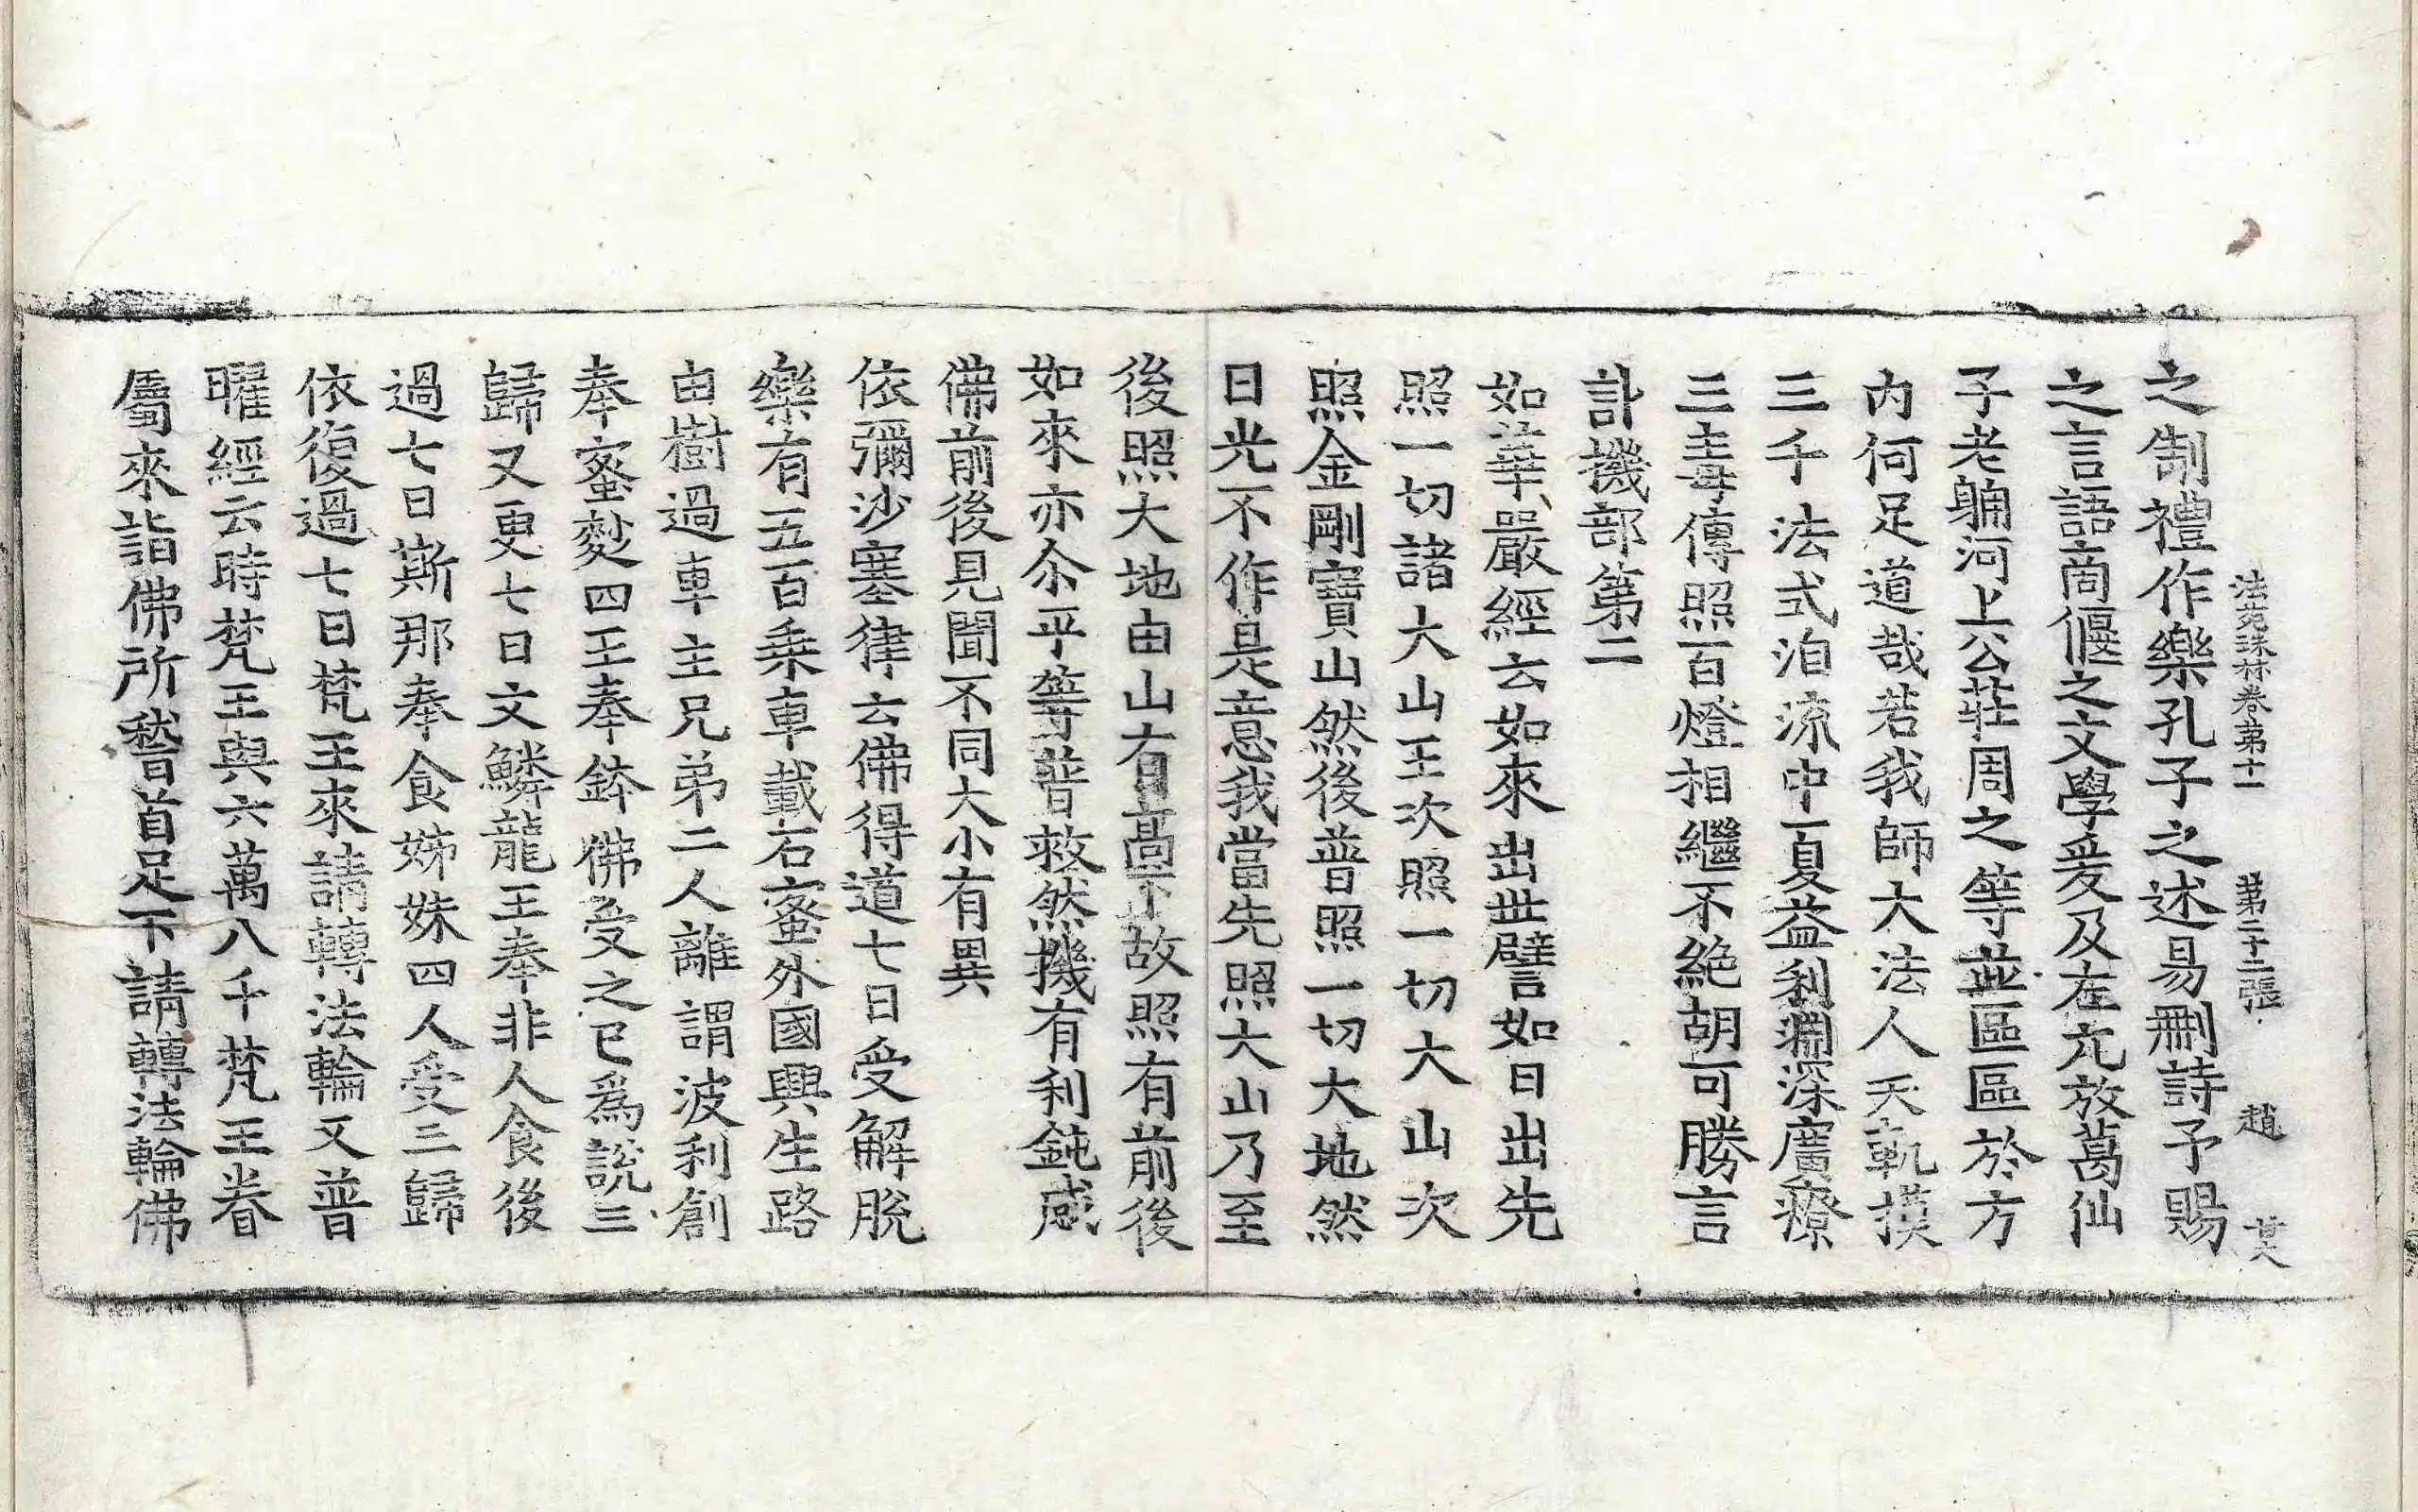 法苑珠林卷第十一 第二十二張 趙
之制禮作樂孔子之述易刪詩予賜
之言語啇偃之文學爰及左元放葛仙
子老聃河上公莊周之等並區區於方
內何足道哉若我師大法人天軌摸
三千法式洎流中夏益利淵深廣療
三毒傳照百燈相繼不絶胡可勝言
訃機部第二
如華嚴經云如來出世譬如日出先
照一切諸大山王次照一切大山次
照金剛寶山然後普照一切大地然
日光不作是意我當先照大山乃至
後照大地由山有高下故照有前後
如來亦尒平等普救然機有利鈍感
佛前後見聞不同大小有異
依彌沙塞律云佛得道七日受解脫
樂有五百乗車載石蜜外國興生路
由樹過車主兄弟二人離謂波利創
奉蜜麨四王奉鉢佛受之已爲說三
歸又更七日文鱗龍王奉非人食後
過七日斯那奉食姊妹四人受三歸
依復過七日梵王來請轉法輪又普
曜經云時梵王與六萬八千梵王眷
屬來詣佛所稽首足下請轉法輪佛